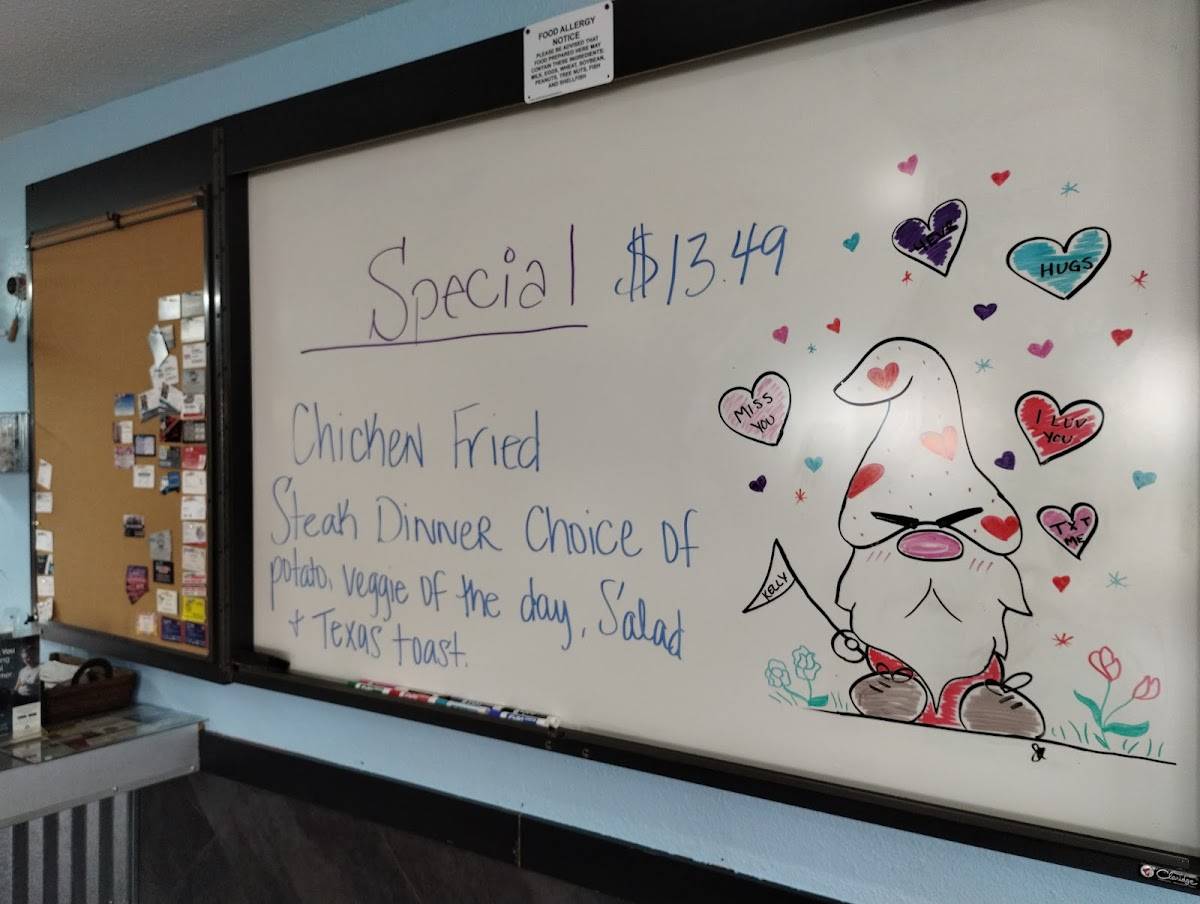 FOOD ALLERGY
NOTICE
PLEASE BE ADVISED THAT
FOOD PREPARED HERE MAY
CONTAIN THESE INGREDIENTS:
MILK, EGGS, WHEAT, SOYBEAN,
PEANUTS, TREE NUTS, FISH
AND SHELLFISH
Special $13.49
Chicken Fried
Steak Dinner Choice of
potato, veggie of the day, Salad
+ Texas toast.
4EVR
HUGS
MISS
YOU
I LUV
YOU
TXT
ME
KELLY
Claridge